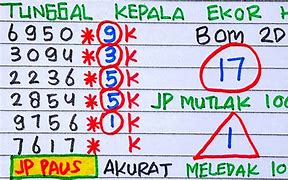 TUNGGAL KEPALA EKOR
6950 * 9 K
3094 * 3 K
2236 * 5 K
2854 * 5 K
9756 * 1 K
7617 * K
JP PAUS AKURAT MELEDAK 10
Bom 2D
17
JP MUTLAK 100
1